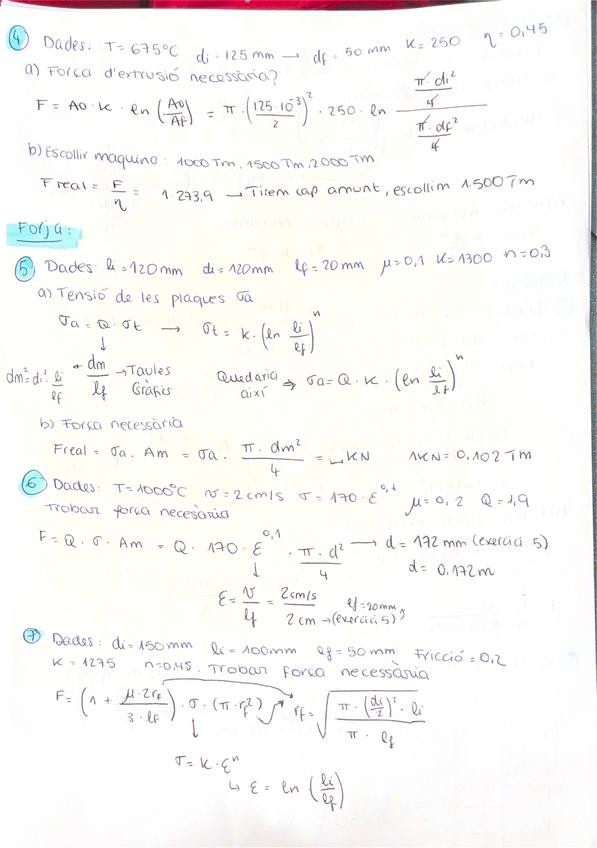 4 Dades: T = 675°C di = 125 mm → df = 50 mm K = 250 η = 0,45
a) Força d'extrusió necessària?
F = A0 · K · ln (A0/Af) = π · (125·10⁻³/2)² · 250 · ln ((π·di²/4)/(π·df²/4))
b) Escollir maquina: 1000 Tm, 1500 Tm, 2000 Tm
F real = F/η = 1.273,9 → Tirem cap amunt, escollim 1.500 Tm
Forja:
5 Dades: li = 120mm di = 120mm lf = 20 mm μ = 0,1 K = 1300 n = 0,3
a) Tensió de les plaques σa
σa = Q · σt → σt = K · (ln li/lf)ⁿ
↓
dm² = di² · li/lf ← dm/lf → Taules Gràfics Quedaria així ⇒ σa = Q · K · (ln li/lf)ⁿ
b) Força necessària
Freal = σa · Am = σa · π·dm²/4 = KN 1KN = 0,102 Tm
6 Dades: T = 1000°C v = 2 cm/s σ = 170 · ε^0,1 μ = 0,2 Q = 1,9
Trobar força necesària
F = Q · σ · Am = Q · 170 · ε^0,1 · π·d²/4 → d = 172 mm (exercici 5)
↓ d = 0,172m
ε = v/lf = 2cm/s / 2 cm → (exercici 5) lf = 20mm
7 Dades: di = 150mm li = 100mm lf = 50 mm Fricció = 0,2
K = 1275 n = 0,45. Trobar força necessària
F = (1 + μ·2rf/3·lf) · σ · (π·rf²) rf = √(π·(di/2)²·li / π·lf)
↓
σ = K · εⁿ
↳ ε = ln (li/lf)